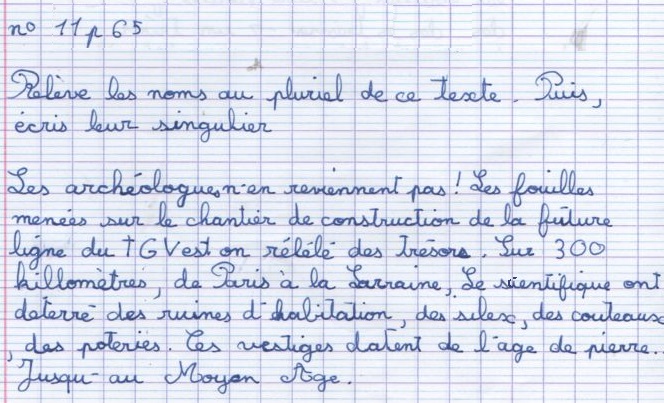 n° 11 p 65
Relève les noms au pluriel de ce texte. Puis,
écris leur singulier
Les archéologues,n'en reviennent pas! Les fouilles
menées sur le chantier de construction de la future
ligne du TGV est on rélélé des trésors. Sur 300
killomètres, de Paris à la Larraine, Le scientifique ont
deterré des ruines d'habitation, des silex, des couteaux
, des poteries. Ces vestiges datent de l'age de pierre..
Jusqu'au Moyen Age.